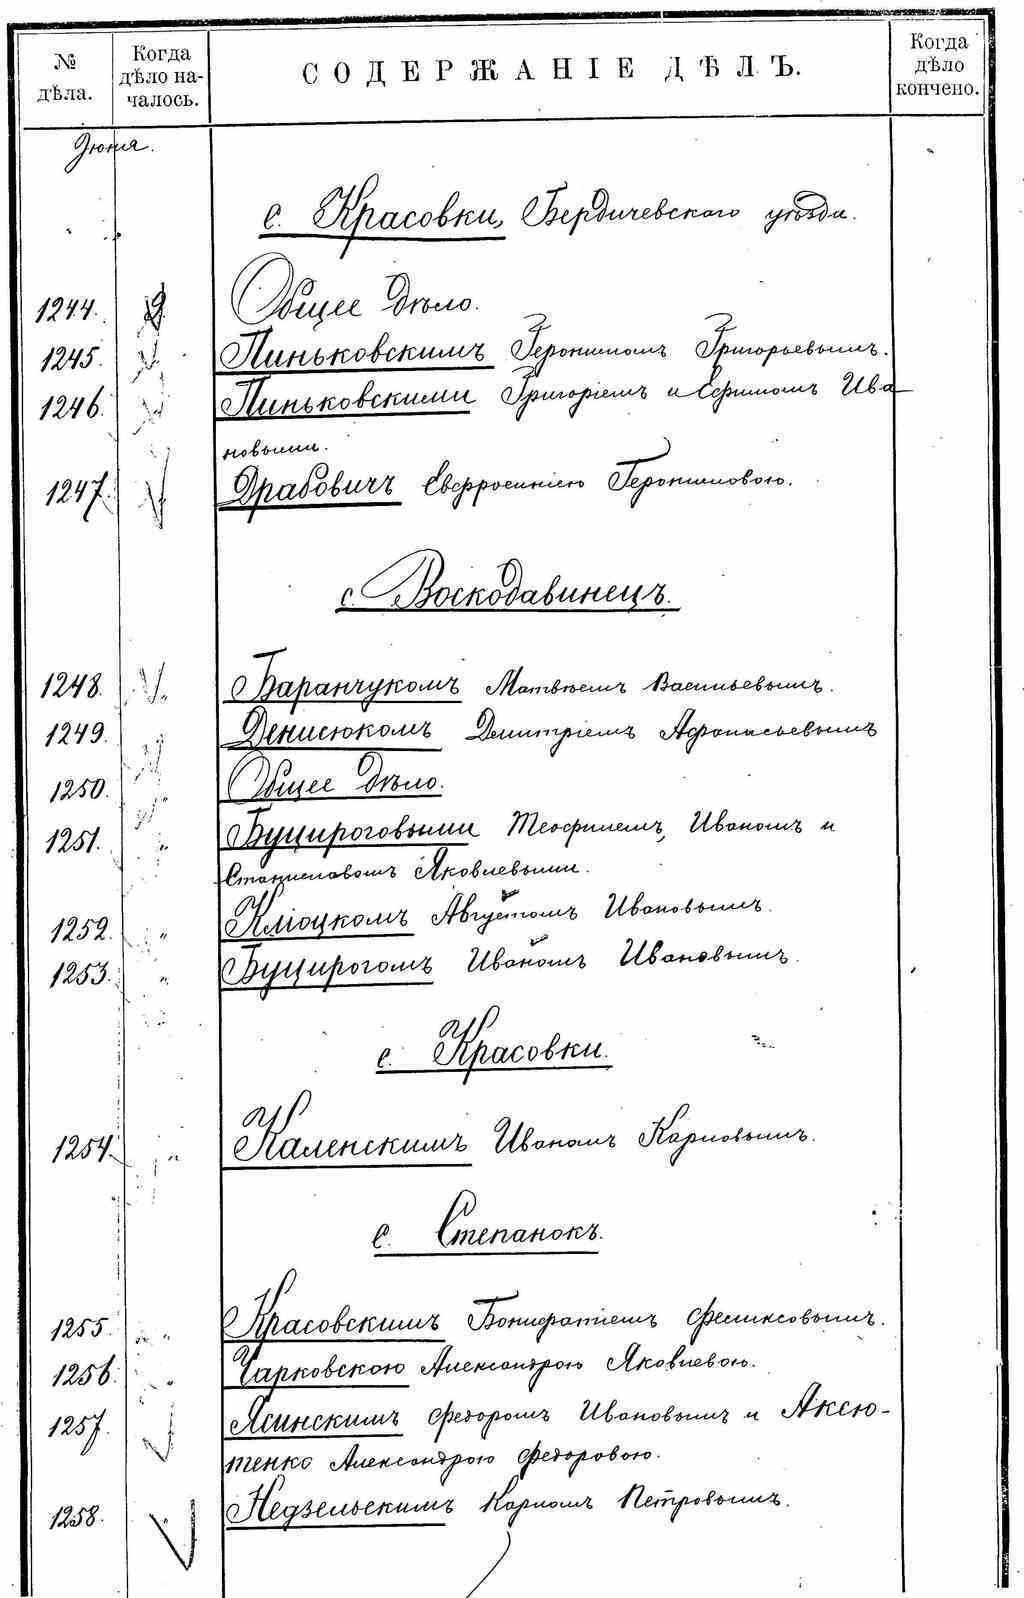 № дѣла.
Когда дѣло на-чалось.
СОДЕРЖАНІЕ ДѢЛЪ.
Когда дѣло кончено.
Июня.
с. Красовки, Бердичевскаго уѣзда.
1244. 9 Общее дѣло.
1245. Пиньковскимъ Геронимомъ Григорьевымъ.
1246. Пиньковскими Григоріемъ и Ефимомъ Ива
новыми.
1247. Драбовичъ Евфросиніею Геронимовою.
с. Воскодавинецъ.
1248. " Баранчукомъ Матвѣемъ Васильевымъ.
1249. Денисюкомъ Дмитріемъ Афанасьевымъ
1250. " Общее дѣло.
1251. " Буцироговыми Теофилемъ, Иваномъ и
Станиславомъ Яковлевыми.
1252. " Кліоцкомъ Августомъ Ивановымъ.
1253. " Буцирогомъ Иваномъ Ивановымъ.
с. Красовки.
1254. " Каленскимъ Иваномъ Карповымъ.
с. Степанокъ.
1255. " Красовскимъ Бонифатіемъ Феликсовымъ.
1256. " Чарковскою Александрою Яковлевою.
1257. Ясинскимъ Федоромъ Ивановымъ и Аксю-
тенко Александрою Федоровою.
1258. " Недзельскимъ Карпомъ Петровымъ.